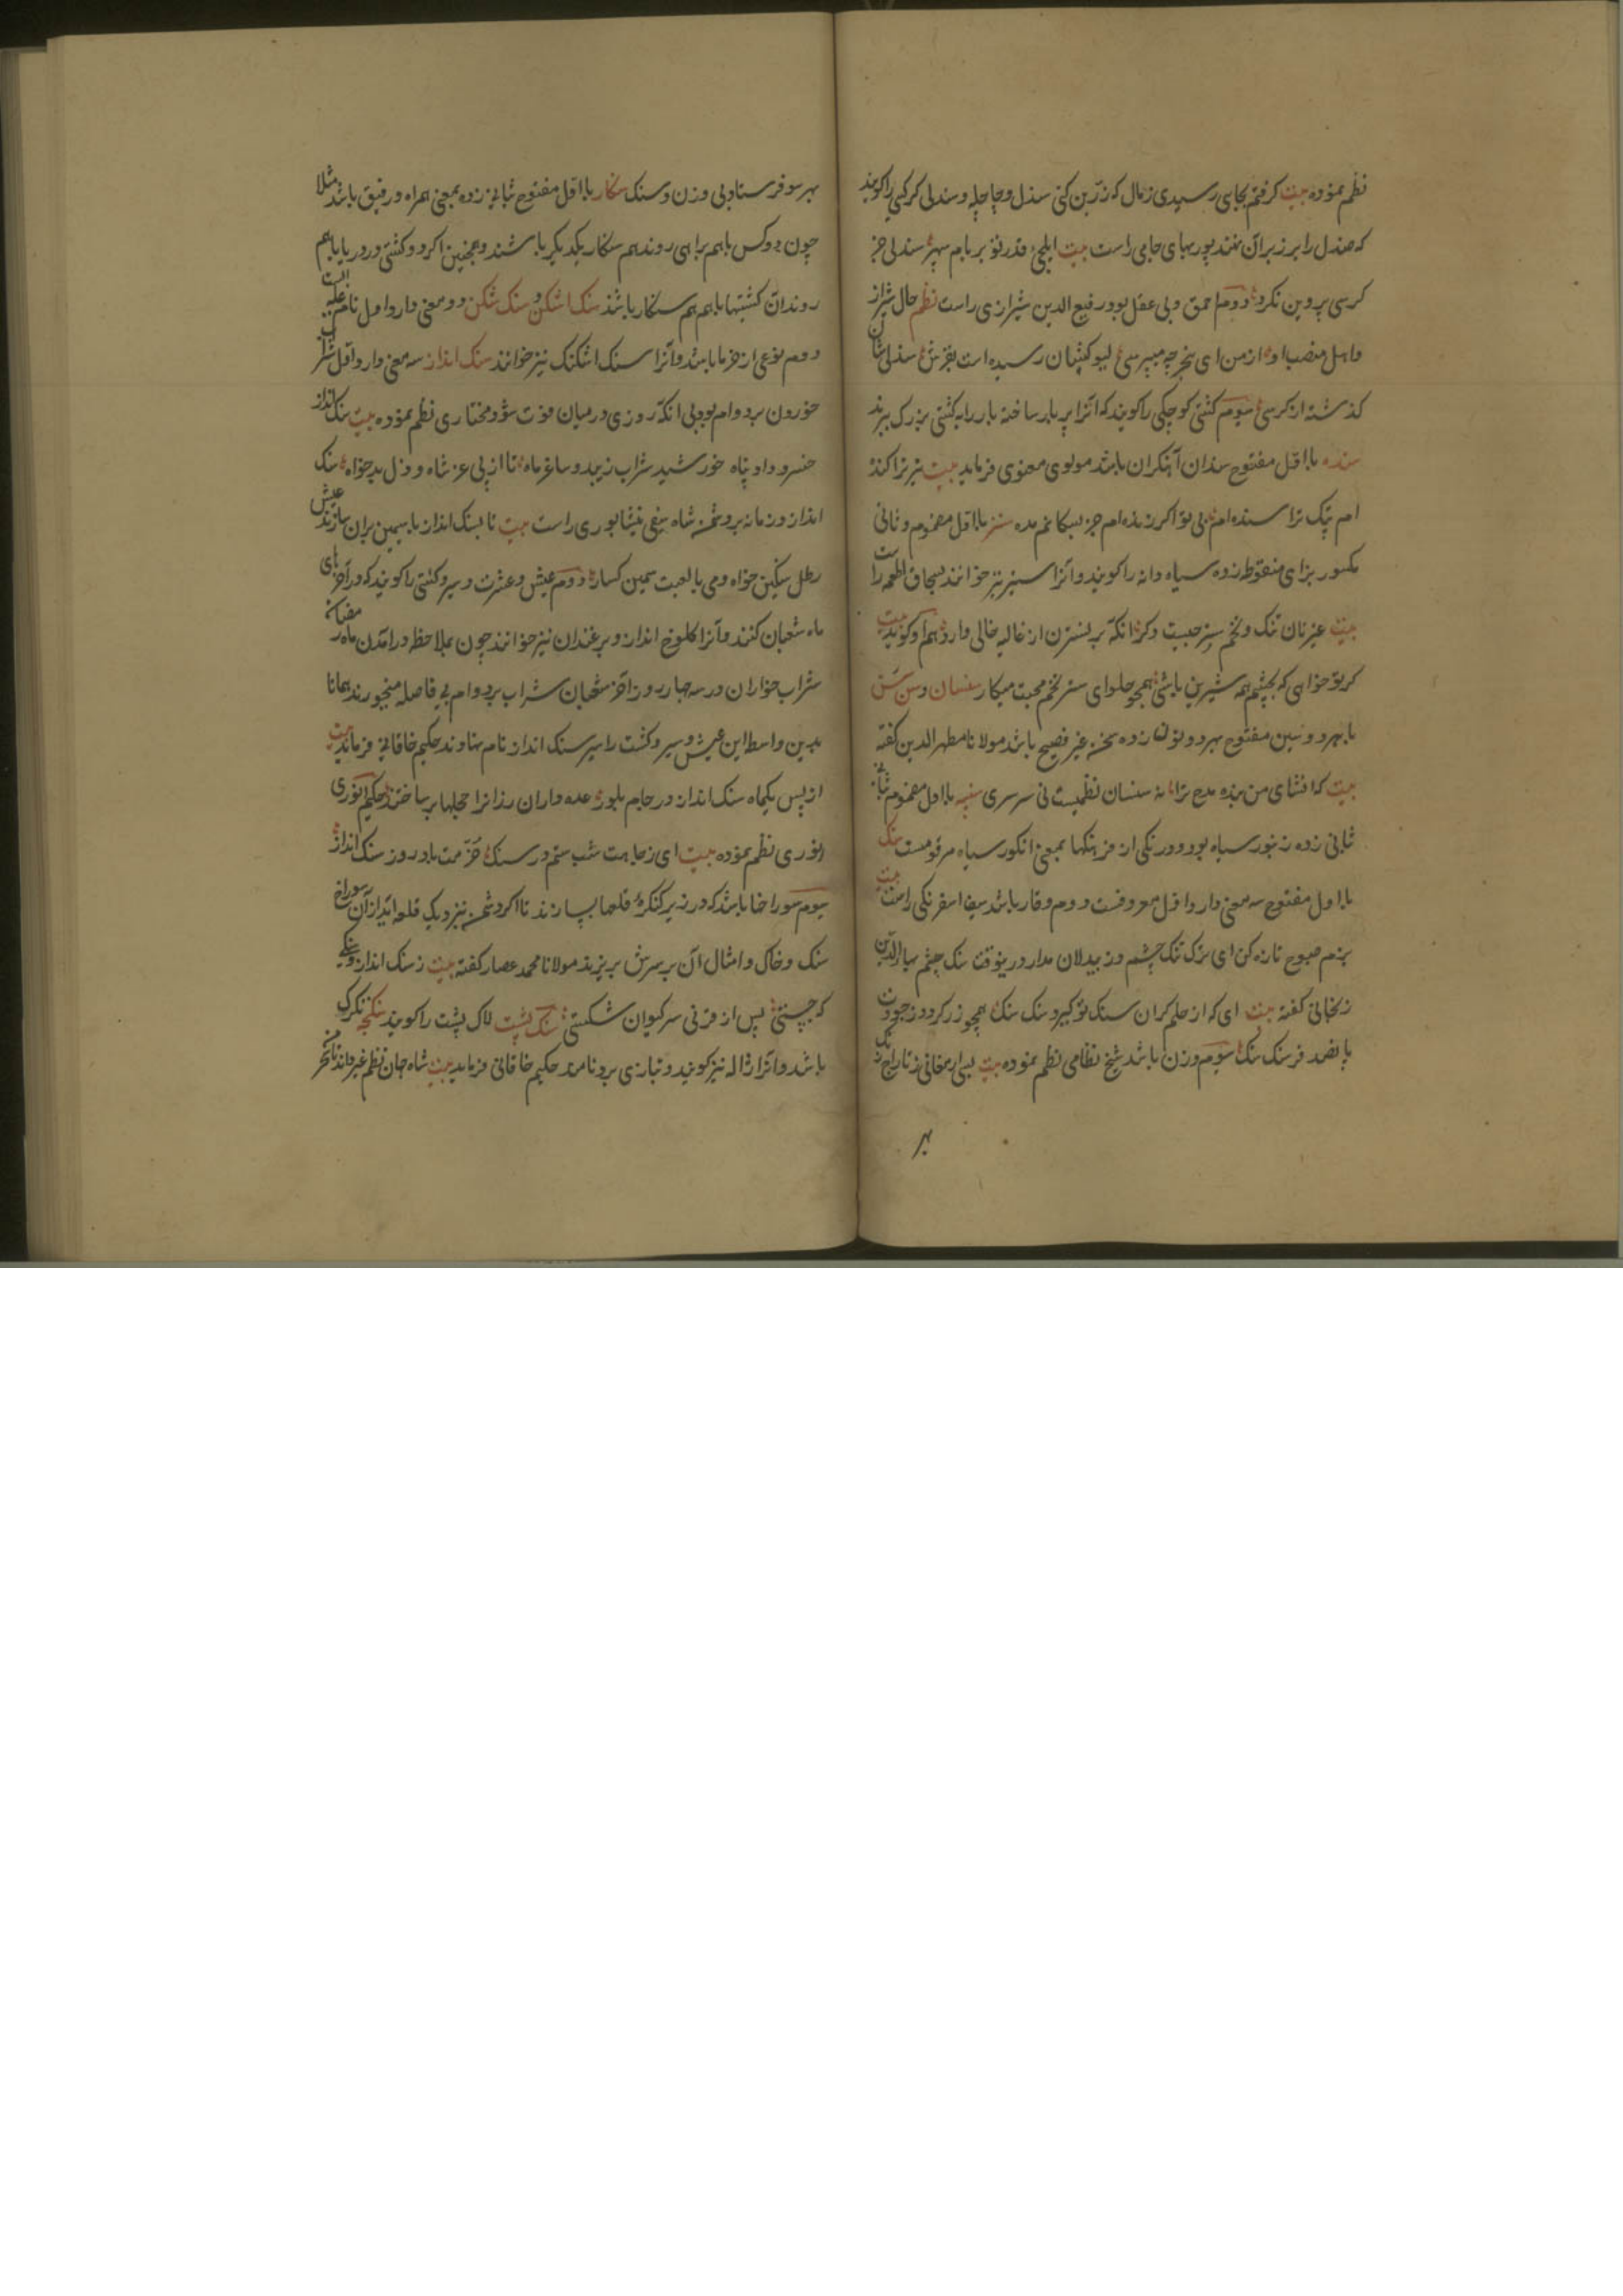 نظم نموده بیت کرفتم بجایی رسیدی زمال که زرین کنی سندل وچاچله وسندلی کرسی راکویند
که صندل را برزبر آن نهند پوربهای جامی راست بیت ایلچیء قدر تو بر بام سپهر سندلی جز
کرسی پروین نکرد دوم احمق وبی عقل بود رفیع الدین شیرازی راست نظم حال شیراز
واهل منصب او از من ای بیخبر چه میپرسی رسیده است بفرش سندلی شان
کذشته از کرسی سوم کشتی کوچکی راکویند که آنرا پر بار ساخته بار را به کشتی بزرک برند
سنده با اول مفتوح سندان آهنکران باشد مولوی معنوی فرماید بیت
ام پتک ترا سنده ام بی تو اکر زنده ام جز بسکانم مده سنز با اول مضموم وثانی
مکسور بزای منقوطه زده سیاه دانه راکویند وآنرا سنیز نیز خوانند بسحاق اطعمه راست
بیت غیر نان تنک وتخم سنز چیست دکر آنکه بر نسترن از غالیه خالی دارد هم او کوید بیت
کر تو خواهی که بچشم همه شیرین باشی همچو حلوای سنز تخم محبت میکار سنسان وسن سن
با هردو سین مفتوح بهردو نون زده سخن غیر فصیح باشد مولانا مطهر الدین کفته
بیت که انشای من بنده مدح ترا نه سنسان نظمیست نی سرسری سنبه با اول مضموم
ثانی زده زنبور سیاه بود ودر نکی از فرهنکها بمعنی انکور سیاه مرقومست سنک
با اول مفتوح سه معنی دارد اول معروفست دوم وقار باشد سیف اسفرنکی راست بیت
بزم صبوح تازه کن ای ترک تنک چشم وز بیدلان مدار درینوقت سنک چشم بهاء الدین
زنجانی کفته بیت ای که از حلم کران سنک تو کیرد سنک سنک همچو زر کردد زجودت
پانصد فرسنک سنک سوم وزن باشد شیخ نظامی نظم نموده بیت بسی ارمغانی ز تاراج زنک
بهر
بهر سو فرستاد بی وزن وسنک سنکار با اول مفتوح بثانی زده بمعنی همراه ورفیق باشد مثلا
چون دوکس باهم براهی روند هم سنکار یکدیکر باشند وهمچنین اکر دو کشتی در دریا باهم
روند آن کشتیها باهم هم سنکار باشند سنک اشکن وسنک شکن دو معنی دارد اول نام غله ایست
دوم نوعی از خرما باشد وآنرا سنک اشکنک نیز خوانند سنک انداز سه معنی دارد اول شراب
خوردن بردوام بود بی آنکه روزی درمیان فوت شود مختاری نظم نموده بیت سنک انداز
خسرو داد پناه خورشید شراب زیبد وساغر ماه تا از پی عز شاه وذل بدخواه سنک
اندازد زمانه بر دشمن شاه سیفی نیشابوری راست بیت تا بسنک انداز با سیمین بران سازند عیش
رطل سنکین خواه ومی با لعبت سیمین کسار دوم عیش وعشرت وسیر وکشتی راکویند که در آخرهای
ماه شعبان کنند وآنرا کلوخ انداز وبرغندان نیز خوانند چون بملاحظه درآمدن ماه رمضان
شراب خواران در سه چهار روز آخر شعبان شراب بردوام بی فاصله میخورند همانا
بدین واسطه این عیش وسیر وکشت را سیر سنک انداز نام نهادند حکیم خاقانی فرماید بیت
از پس یکماه سنک انداز در جام بلور عده داران رزانرا حجلها برساختند حکیم انوری
انوری نظم نموده بیت ای زجاهت شب ستم در سنک خرمت باد روز سنک انداز
سوم سوراخها باشد که در زیر کنکرهٔ قلعها بسازند تا اکر دشمن بنزدیک قلعه آید از آن سوراخ
سنک وخاک وامثال آن بر سرش بریزند مولانا محمد عصار کفته بیت زسنک انداز
که جستی پس از قرنی سر کیوان شکستی سنک پشت لاک پشت راکویند سنکچه تکرک
باشد وآنرا ژاله نیز کویند وبتازی برد نامند حکیم خاقانی فرماید بیت شاه جهان نظم غیر داند